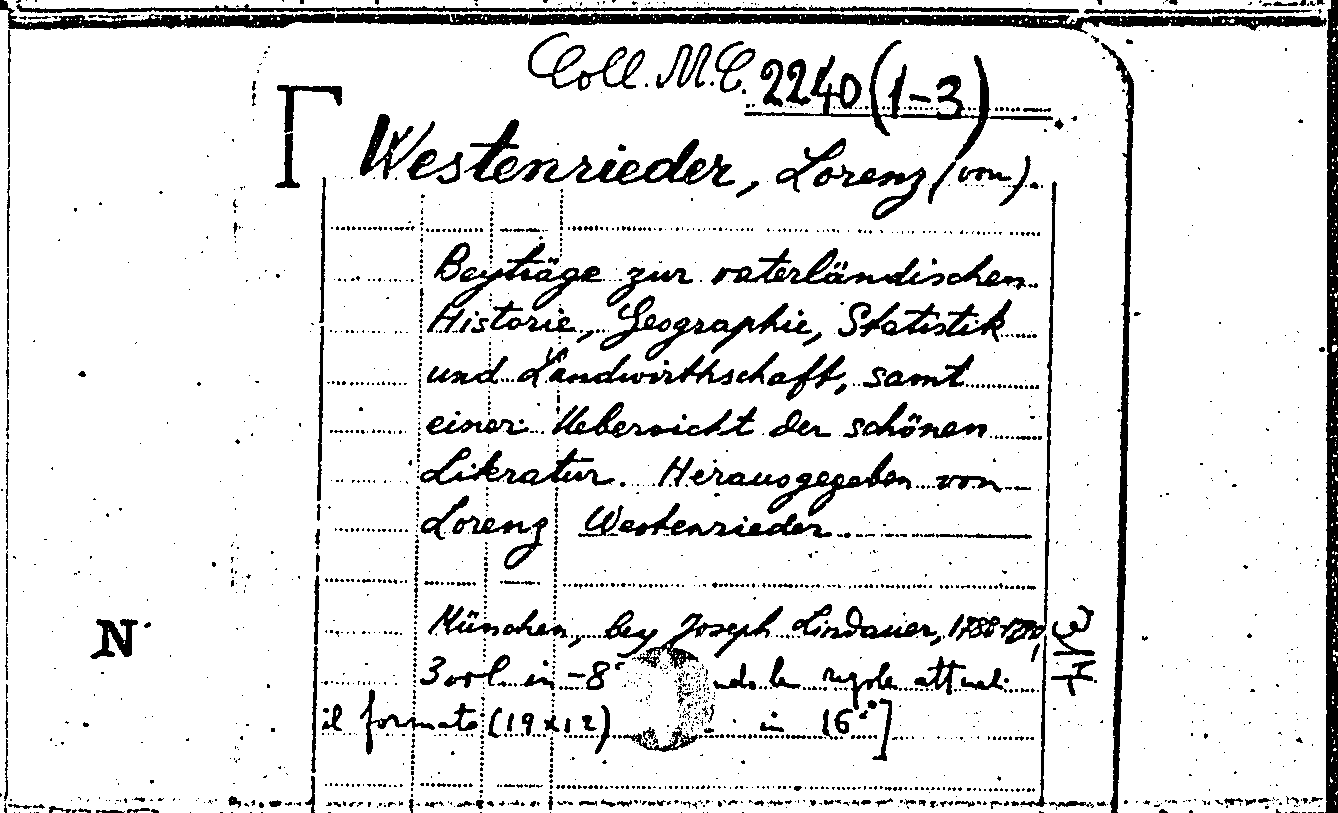 Coll. M.C. 2240 (1-3)
Westenrieder, Lorenz (von).
Beyträge zur vaterländischen
Historie, Geographie, Statistik
und Landwirthschaft, samt
einer Uebersicht der schönen
Literatur. Herausgegeben von
Lorenz Westenrieder
N
München, bey Joseph Lindauer,
3 vol. in-8° le regole attuali
il formato (19x12) in 16°]